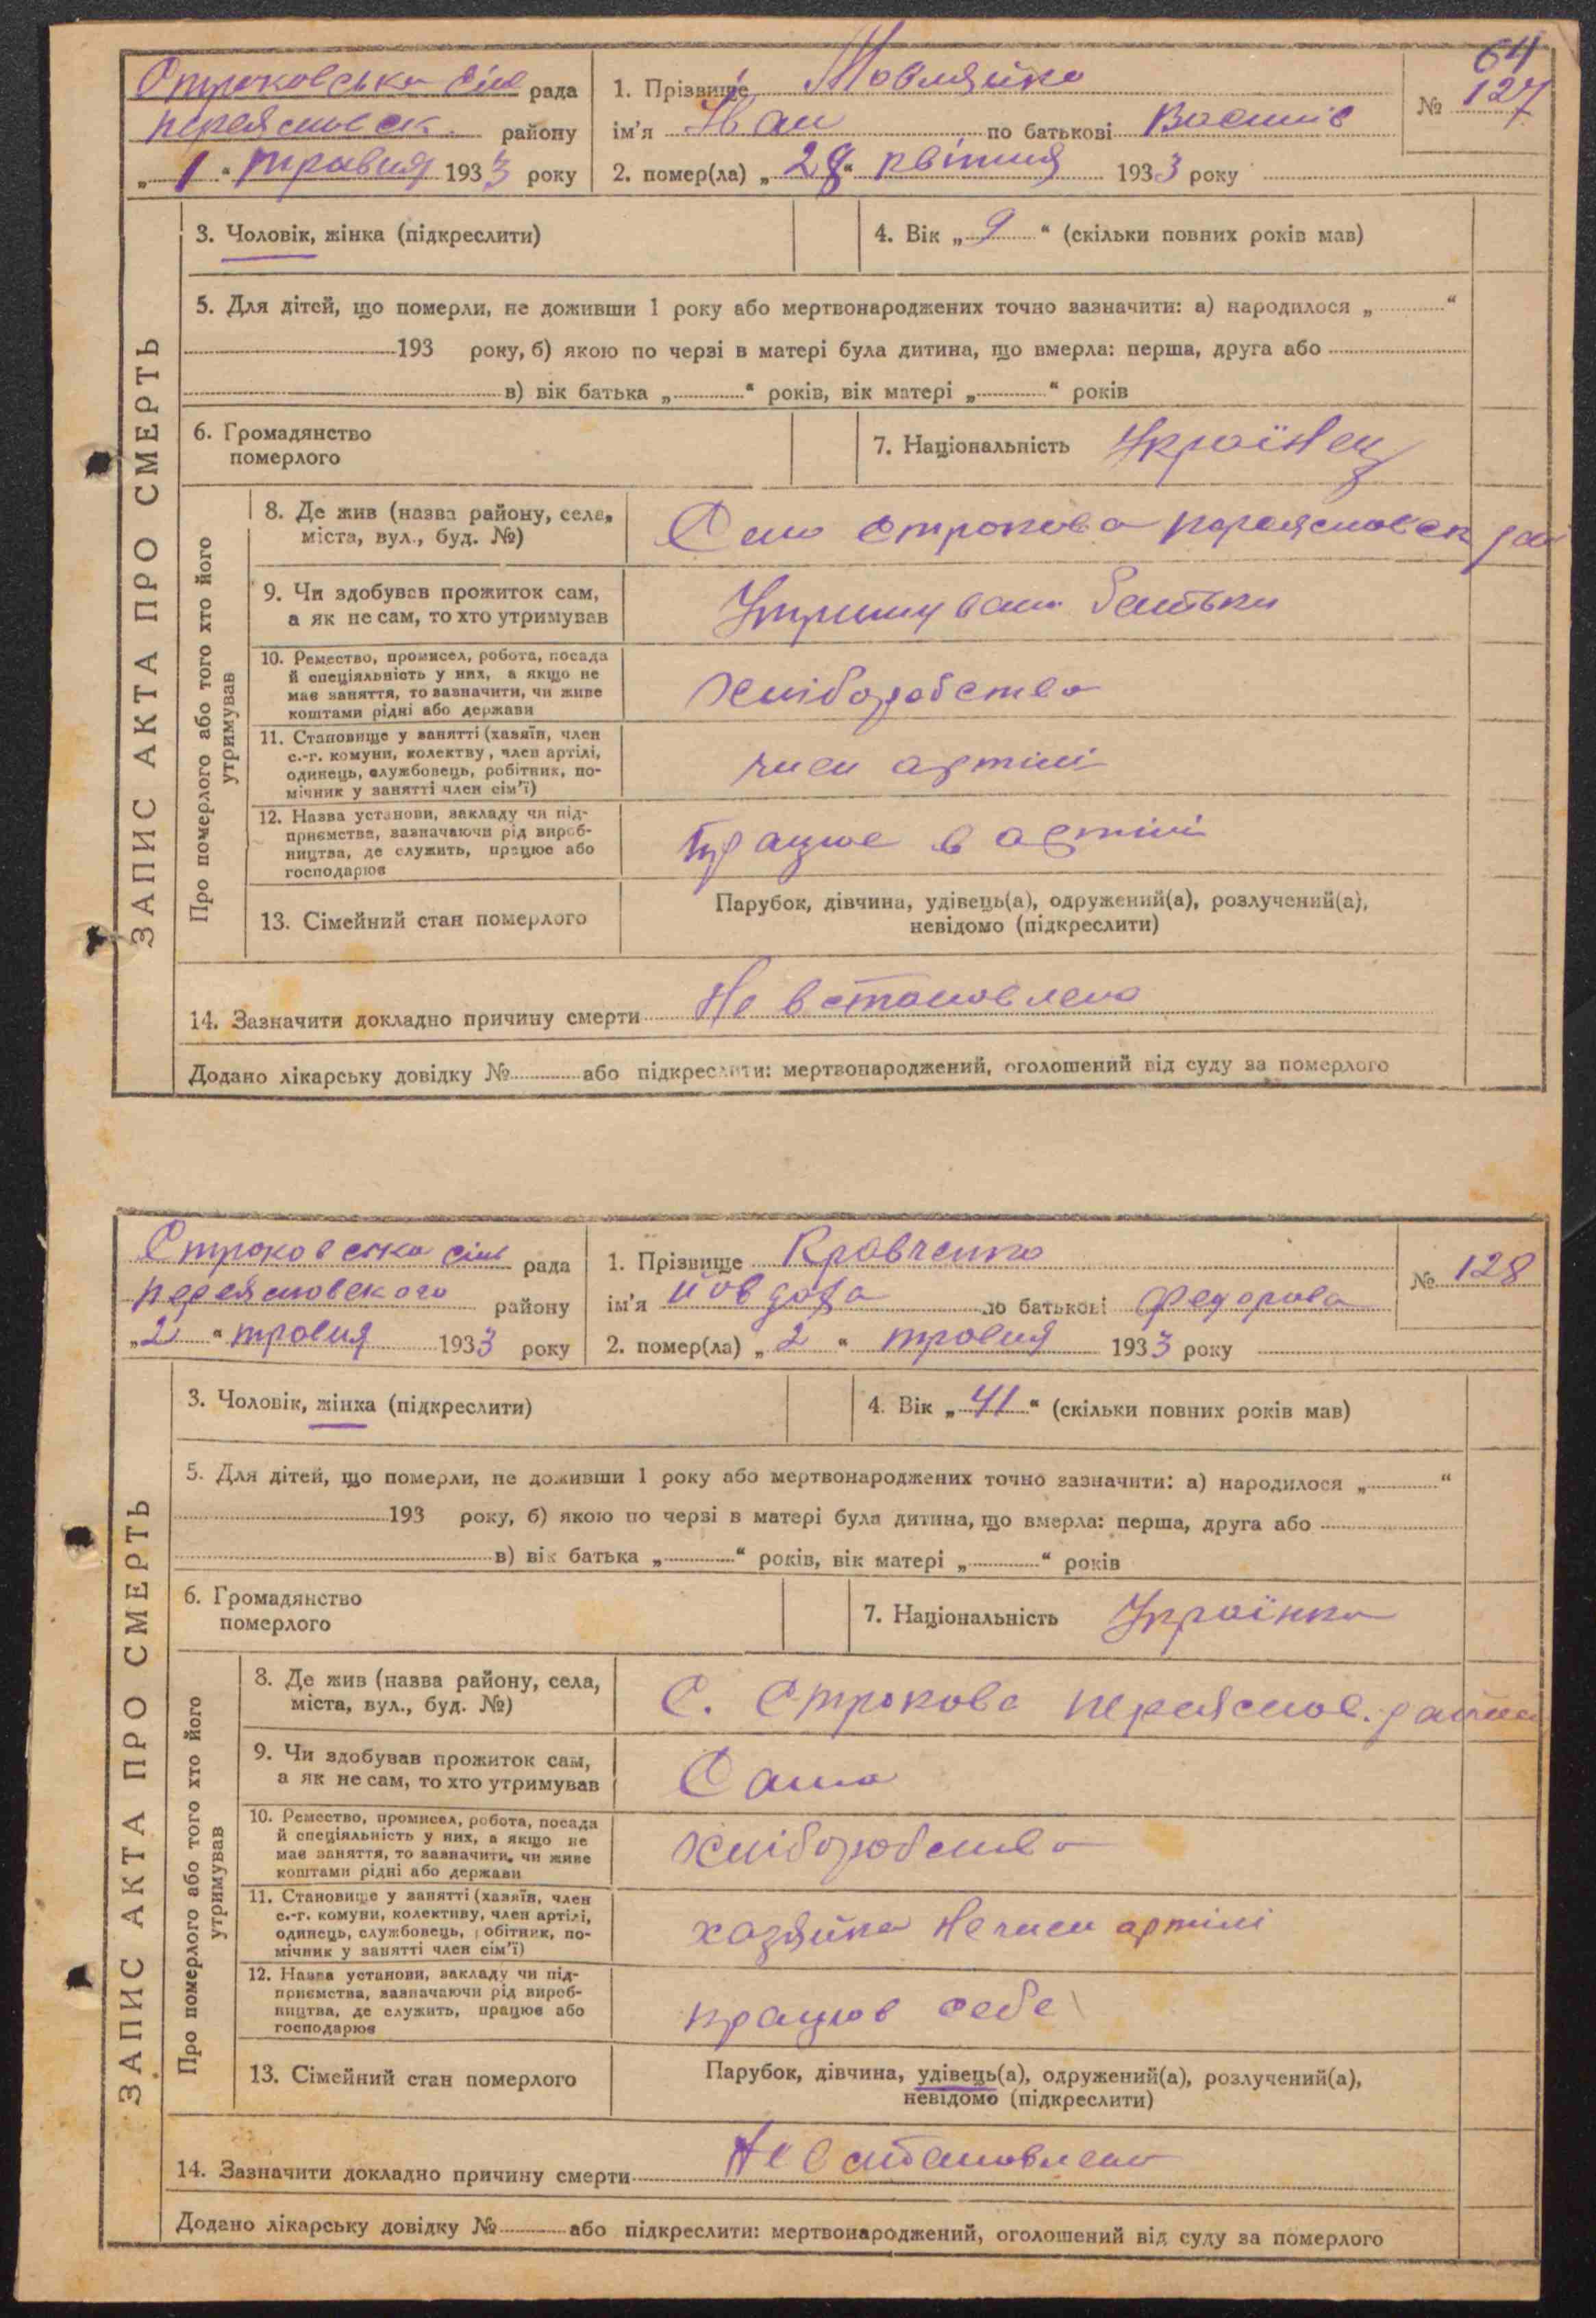 64
Строковська сіл рада
1. Прізвище Мовляйко
№ 127
переяславск. району
ім'я Іван по батькові Василів
„ 1 “ травня 1933 року
2. помер(ла) „ 28 “ квітня 1933 року
ЗАПИС АКТА ПРО СМЕРТЬ
3. Чоловік, жінка (підкреслити)
4. Вік „ 9 “ (скільки повних років мав)
5. Для дітей, що померли, не доживши 1 року або мертвонароджених точно зазначити: а) народилося „ “
193 року, б) якою по черзі в матері була дитина, що вмерла: перша, друга або
в) вік батька „ “ років, вік матері „ “ років
6. Громадянство
померлого
7. Національність Українец
Про померлого або того хто його
утримував
8. Де жив (назва району, села,
міста, вул., буд. №)
Село Строкова Переяславск рай
9. Чи здобував прожиток сам,
а як не сам, то хто утримував
Утримували батьки
10. Ремество, промисел, робота, посада
й спеціяльність у них, а якщо не
має заняття, то зазначити, чи живе
коштами рідні або держави
Хліборобство
11. Становище у занятті (хазяїн, член
с.-г. комуни, колектву, член артілі,
одинець, службовець, робітник, по-
мічник у занятті член сім'ї)
член артілі
12. Назва установи, закладу чи під-
приємства, зазначаючи рід вироб-
ництва, де служить, працює або
господарює
Працює в артілі
13. Сімейний стан померлого
Парубок, дівчина, удівець(а), одружений(а), розлучений(а),
невідомо (підкреслити)
14. Зазначити докладно причину смерти Не встановлено
Додано лікарську довідку № або підкреслити: мертвонароджений, оголошений від суду за померлого
Строковска сіл рада
1. Прізвище Кравченко
№ 128
переяславского району
ім'я Йовдоха по батькові Федорова
„ 2 “ травня 1933 року
2. помер(ла) „ 2 “ травня 1933 року
ЗАПИС АКТА ПРО СМЕРТЬ
3. Чоловік, жінка (підкреслити)
4. Вік „ 41 “ (скільки повних років мав)
5. Для дітей, що померли, не доживши 1 року або мертвонароджених точно зазначити: а) народилося „ “
193 року, б) якою по черзі в матері була дитина, що вмерла: перша, друга або
в) вік батька „ “ років, вік матері „ “ років
6. Громадянство
померлого
7. Національність Українка
Про померлого або того хто його
утримував
8. Де жив (назва району, села,
міста, вул., буд. №)
С. Строкова Переяслов. района
9. Чи здобував прожиток сам,
а як не сам, то хто утримував
Сама
10. Ремество, промисел, робота, посада
й спеціяльність у них, а якщо не
має заняття, то зазначити, чи живе
коштами рідні або держави
Хліборобства
11. Становище у занятті (хазяїн, член
с.-г. комуни, колективу, член артілі,
одинець, службовець, робітник, по-
мічник у занятті член сім'ї)
хазяйка Не член артілі
12. Назва установи, закладу чи під-
приємства, зазначаючи рід вироб-
ництва, де служить, працює або
господарює
працюв себе
13. Сімейний стан померлого
Парубок, дівчина, удівець(а), одружений(а), розлучений(а),
невідомо (підкреслити)
14. Зазначити докладно причину смерти Не встановлено
Додано лікарську довідку № або підкреслити: мертвонароджений, оголошений від суду за померлого